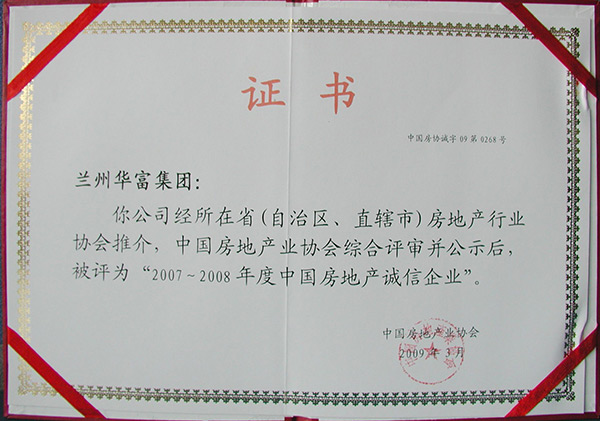 证书
中国房协诚字 09 第 0268 号
兰州华富集团：
你公司经所在省(自治区、直辖市)房地产行业
协会推介，中国房地产业协会综合评审并公示后，
被评为“2007～2008 年度中国房地产诚信企业”。
中国房地产业协会
2009 年 3 月